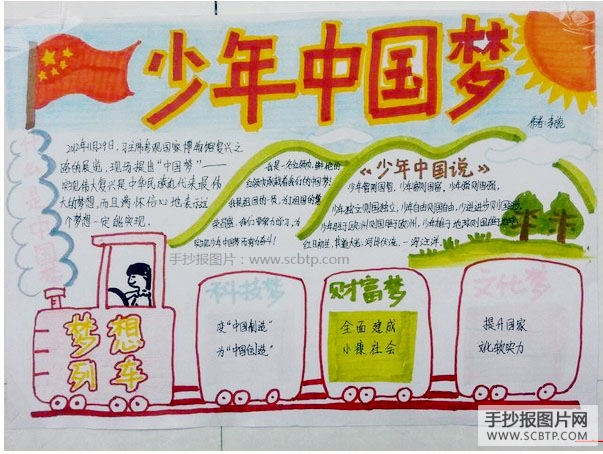 少年中国梦
什么是中国梦
2012年11月29日,习主席参观国家博物馆复兴之
路的展览,现场提出“中国梦”——
实现伟大复兴是中华民族近代来最伟
大的梦想,而且满怀信心地表示这
个梦想一定能实现.
《少年中国说》
少年智则国智,少年富则国富,少年强则国强,
少年独立则国独立,少年自由则国自由,少年进步则国进步,
少年胜于欧洲则国胜于欧洲,少年雄于地球则国雄于地球.
手抄报图片:www.scbtp.com
科技梦
变“中国制造”
为“中国创造”
财富梦
全面建成
小康社会
文化梦
提升国家
文化软实力
梦想
列车
手抄报图片网
WWW.SCBTP.COM